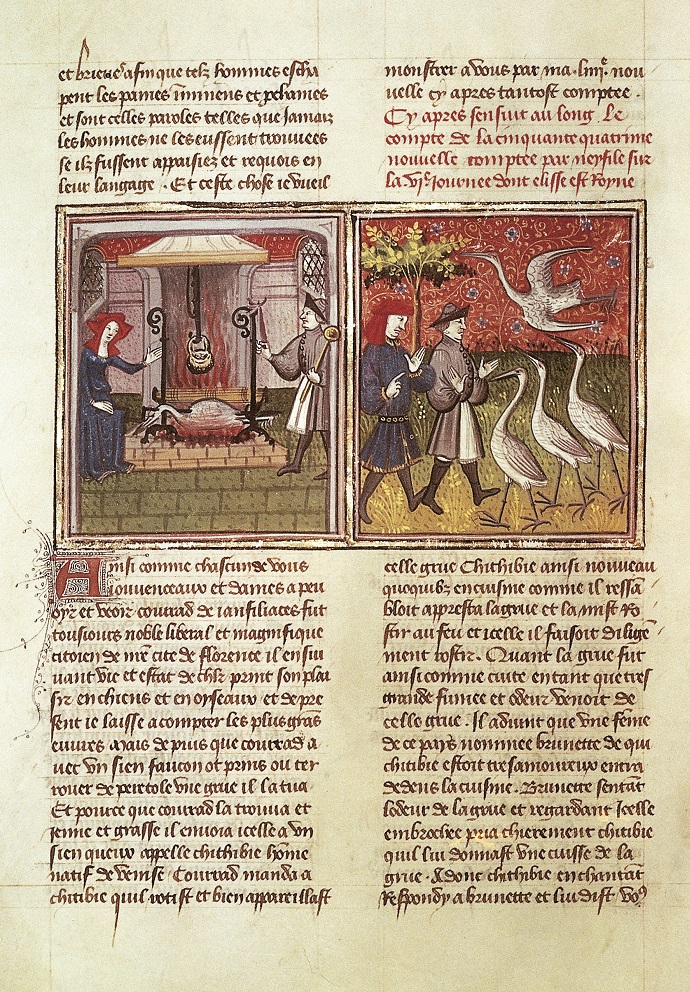 et briesue afin que telz hommes escha
pent les paines iminens et
et sont celles paroles telles que jamaiz
les hommes ne les eussent trouuees
se ilz fussent appaisiez et requois en
leur langage . Et ceste chose ie vueil
monstrer a vous par ma nou
uelle cy apres tantost comptee .
Cy apres sensuit au long le
compte de la cinquante quatrime
nouuelle comptee par neyfile sur
la vie Journee dont elisse est Royne
Ainsi comme chascun de vous
iouuenceaux et dames a peu
oyr et veoir courad de ianfiliaces fut
tousiours noble liberal et magnifique
citoien de nre cite de florence il ensiu
uant vie et estat de chlr print son plai
sir en chiens et en oyseaux et de pre
sent ie laisse a compter les plus gras
euures Mais depuis que courad a
uec vn sien faucon ot prins ou ter
rouer de peretole vne grue il la tua
Et pource que courad la trouua et
jenne et grasse il enuoia icelle a vn
sien queux appelle chithibie home
natif de venise Courad manda a
chitibie quil rotist et bien appareillast
celle grue Chithibie ainsi nouueau
en cuisine comme il ressam
bloit appresta la grue et la mist ro
stir au feu et icelle il faisoit dilige
ment rostir . Quant la grue fut
ainsi comme cuite entant que tres
grande fumee et odeur venoit de
celle grue . Il aduint que vne feme
de ce pays nommee brunette de qui
chitibie estoit tres amoureux entra
dedens la cuisine . Brunette sentat
lodeur de la grue et regardant icelle
embrochee pria chierement chitibie
quil lui donnast vne cuisse de la
grue . Adonc chithibie en chantat
Respondy a brunette et lui dist vo9